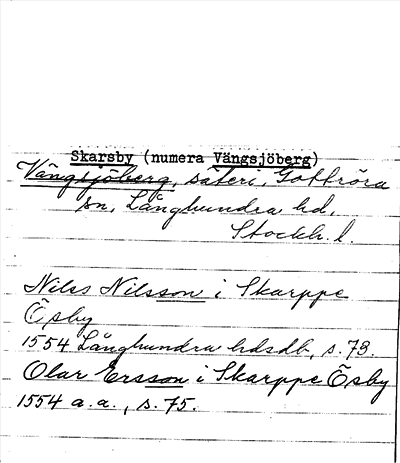 Skarsby (numera Vängsjöberg)
Vängsjöberg, säteri, Gottröra
sn, Långhundra hd,
Stockh. l.
Nilss Nilsson i Skarppe
Õsby
1554 Långhundra hdsdb, s. 73.
Olar Ersson i Skarppe Õsby
1554 a.a., s. 75.